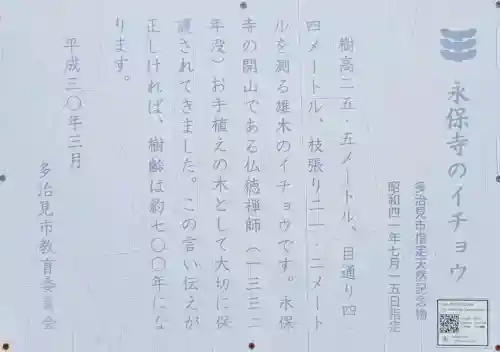 永保寺のイチョウ
多治見市指定天然記念物
昭和四一年七月一五日指定
樹高二五・五メートル、目通り四・
四メートル、枝張り二一・二メート
ルを測る雄木のイチョウです。永保
寺の開山である仏徳禅師（一三三二
年没）お手植えの木として大切に保
護されてきました。この言い伝えが
正しければ、樹齢は約七〇〇年にな
ります。
平成三〇年三月
多治見市教育委員会